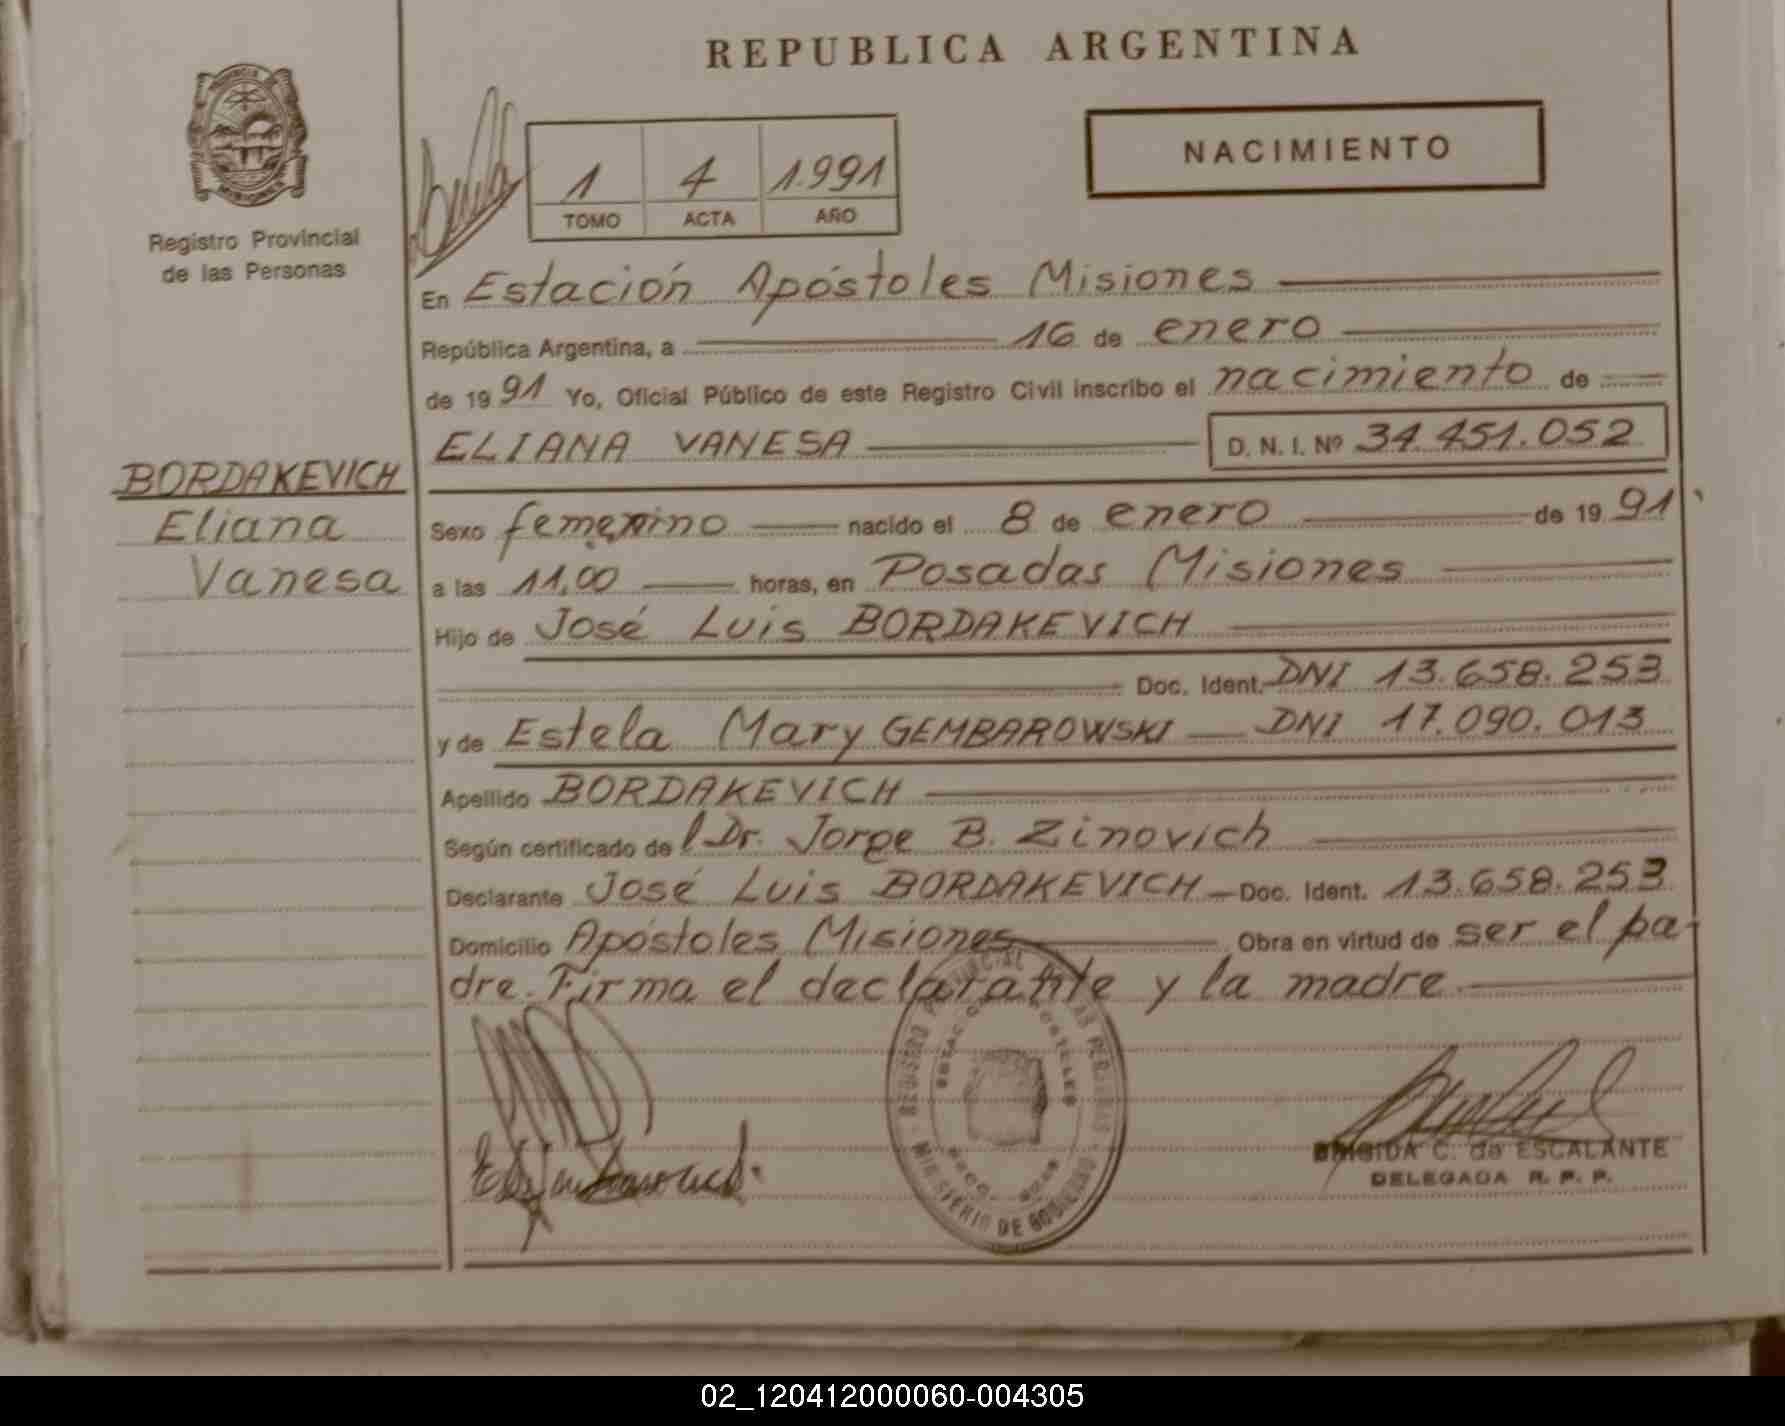 REPUBLICA ARGENTINA
NACIMIENTO
1 4 1.991
TOMO ACTA AÑO
Registro Provincial
de las Personas
En Estación Apóstoles Misiones
República Argentina, a 16 de enero
de 1991 Yo, Oficial Público de este Registro Civil inscribo el nacimiento de
ELIANA VANESA D. N. I. Nº 34.451.052
BORDAKEVICH
Eliana
Vanesa
Sexo femenino nacido el 8 de enero de 1991
a las 11,00 horas, en Posadas Misiones
Hijo de José Luis BORDAKEVICH
Doc. Ident. DNI 13.658.253
y de Estela Mary GEMBAROWSKI DNI 17.090.013
Apellido BORDAKEVICH
Según certificado del Dr. Jorge B. Zinovich
Declarante José Luis BORDAKEVICH Doc. Ident. 13.658.253
Domicilio Apóstoles Misiones Obra en virtud de ser el pa-
dre. Firma el declarante y la madre
REGISTRO PROVINCIAL DE LAS PERSONAS
MINISTERIO DE GOBIERNO
BRIGIDA C. de ESCALANTE
DELEGADA R. P. P.
02_120412000060-004305